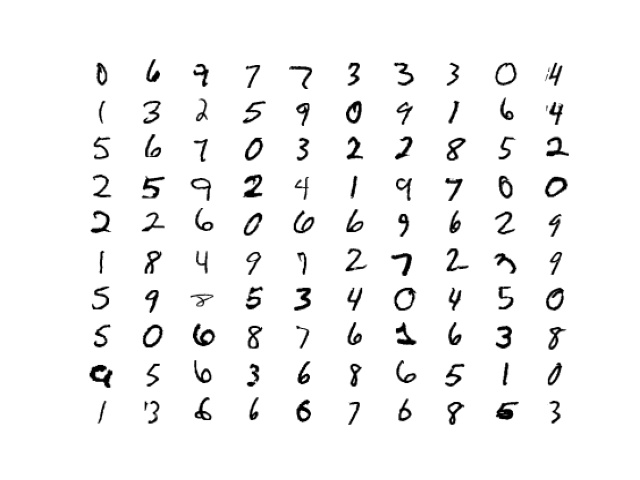 0 6 9 7 7 3 3 3 0 4
1 3 2 5 9 0 9 1 6 4
5 6 7 0 3 2 2 8 5 2
2 5 9 2 4 1 9 7 0 0
2 2 6 0 6 6 9 6 2 9
1 8 4 9 7 2 7 2 3 9
5 9 8 5 3 4 0 4 5 0
5 0 6 8 7 6 1 6 3 8
9 5 6 3 6 8 6 5 1 0
1 3 6 6 6 7 6 8 5 3